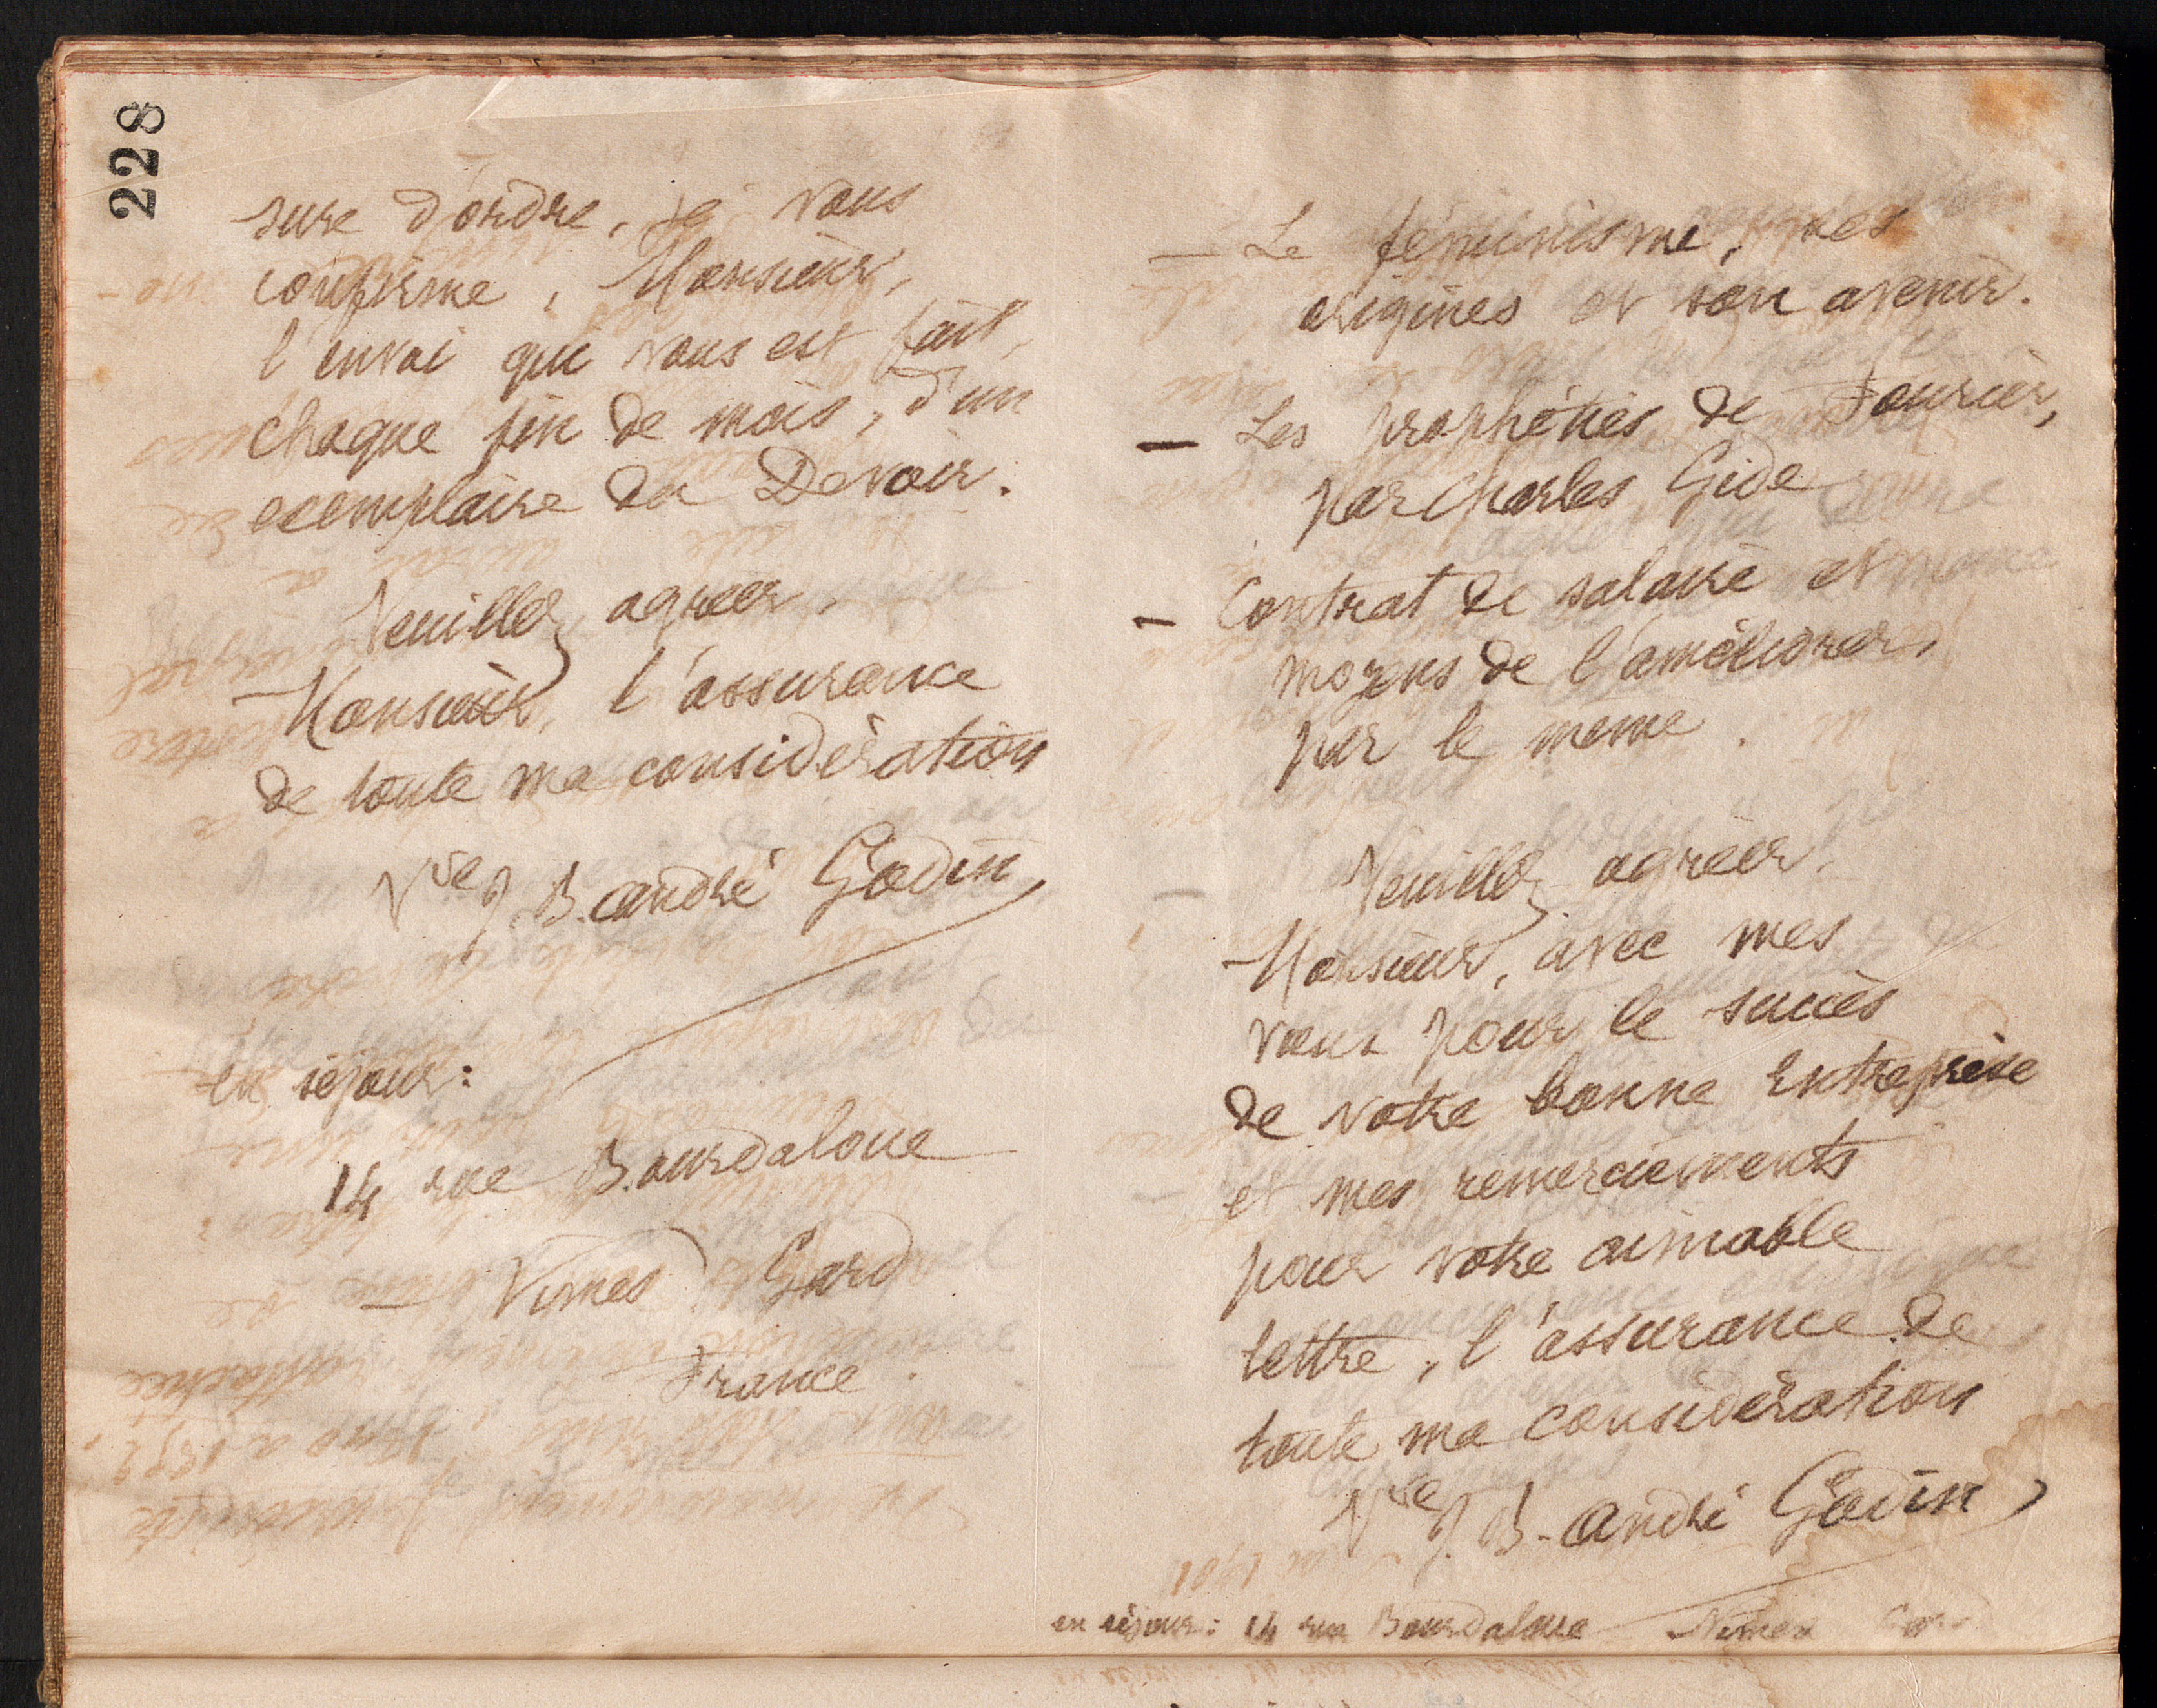 228
sure d'ordre, je vous
confirme, Monsieur,
l'envoi qui vous est fait,
chaque fin de mois, d'un
exemplaire du Devoir.
Veuillez agréer,
Monsieur, l'assurance
de toute ma considération
Vve J. B. André Godin
en séjour:
14 rue Bourdaloue
Nimes Gard
France.
— Le féminisme, ses
origines et son avenir.
— Les prophéties de Fourier,
par Charles Gide
— Contrat de salaire et
moyens de l'améliorer,
par le même.
Veuillez agréer,
Monsieur, avec mes
vœux pour le succès
de votre bonne entreprise
et mes remerciements
pour votre aimable
lettre, l'assurance de
toute ma considération
Vve J. B. André Godin
en séjour: 14 rue Bourdaloue Nimes Gard